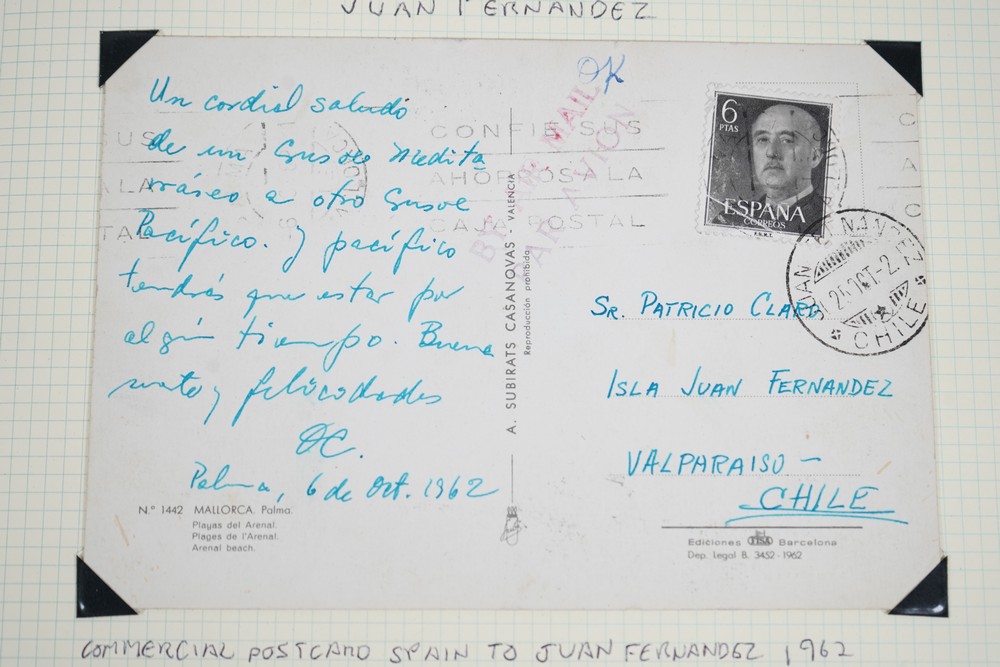 JUAN FERNANDEZ
Un cordial saludo
de un Medita
rráneo a otro
Pacífico. y pacífico
tendrás que estar por
algún tiempo. Buena
y felicidades
Palma, 6 de Oct. 1962
N.º 1442 MALLORCA. Palma.
Playas del Arenal.
Plages de l'Arenal.
Arenal beach.
A. SUBIRATS CASANOVAS - VALENCIA
Reproducción prohibida
OK
BY AIR MAIL
PAR AVION
CONFIE SUS
AHORROS A LA
CAJA POSTAL
6
PTAS
ESPAÑA
CORREOS
F.N.M.T.
JUAN FERNANDEZ
CHILE
SR. PATRICIO CLARO
ISLA JUAN FERNANDEZ
VALPARAISO -
CHILE
Ediciones FISA Barcelona
Dep. Legal B. 3452-1962
COMMERCIAL POSTCARD SPAIN TO JUAN FERNANDEZ 1962